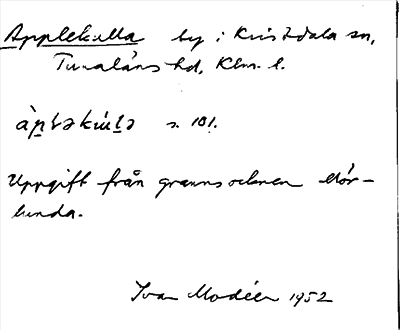 Applekulla by i Kristdala sn,
Tunaläns hd, Klm. l.
s. 101.
Uppgift från grannsocknen Mör-
lunda.
Ivar Modéer 1952